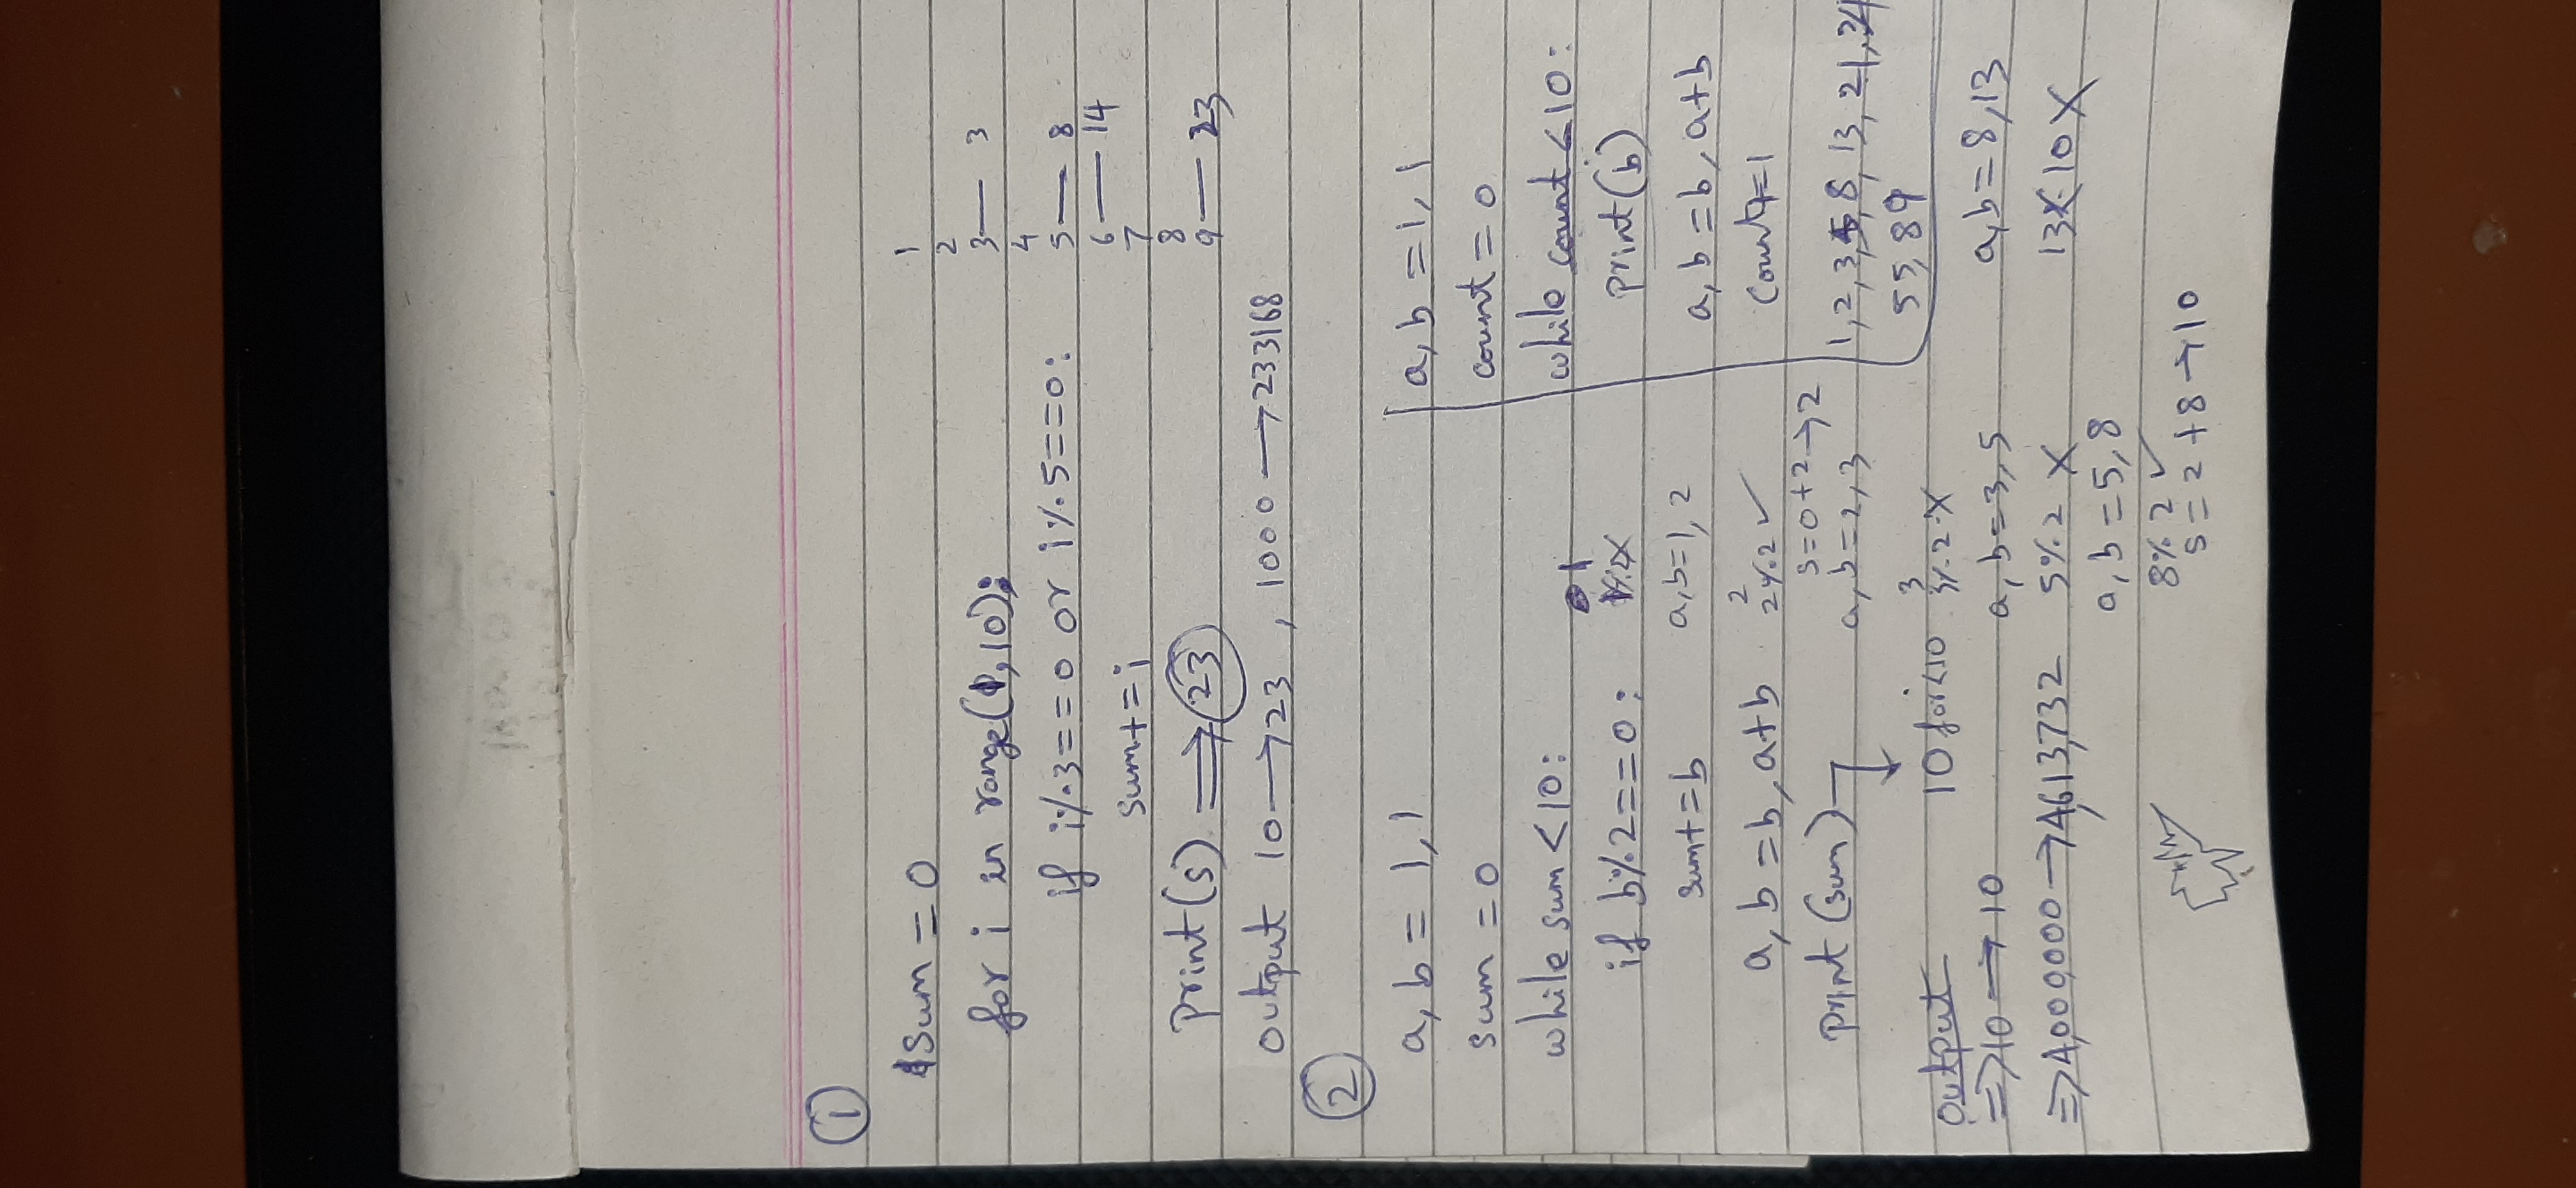 1
Sum = 0
for i in range(1,10):
if i%3==0 or i%5==0:
sum+=i
print(s) ⟹ 23
output 10→23 , 1000→233168
1
2
3— 3
4
5— 8
6— 14
7
8
9— 23
2
a, b = 1, 1
sum = 0
while sum<10:
if b%2==0:
sum+=b
a, b=b, a+b
print (sum)
10 for<10
output
=>10→10
=>4,000,000→4,613,732
1
a,b=1, 2
2
2%2 ✓
s=0+2→2
a, b=2,3
3
3%2 X
a, b=3,5
5%2 X
a, b=5,8
8%2 ✓
s=2+8→10
a, b =1, 1
count = 0
while count<10:
print(b)
a, b=b, a+b
count+=1
1,2,3,5,8, 13, 21,34
55,89
a,b=8,13
13<10 X